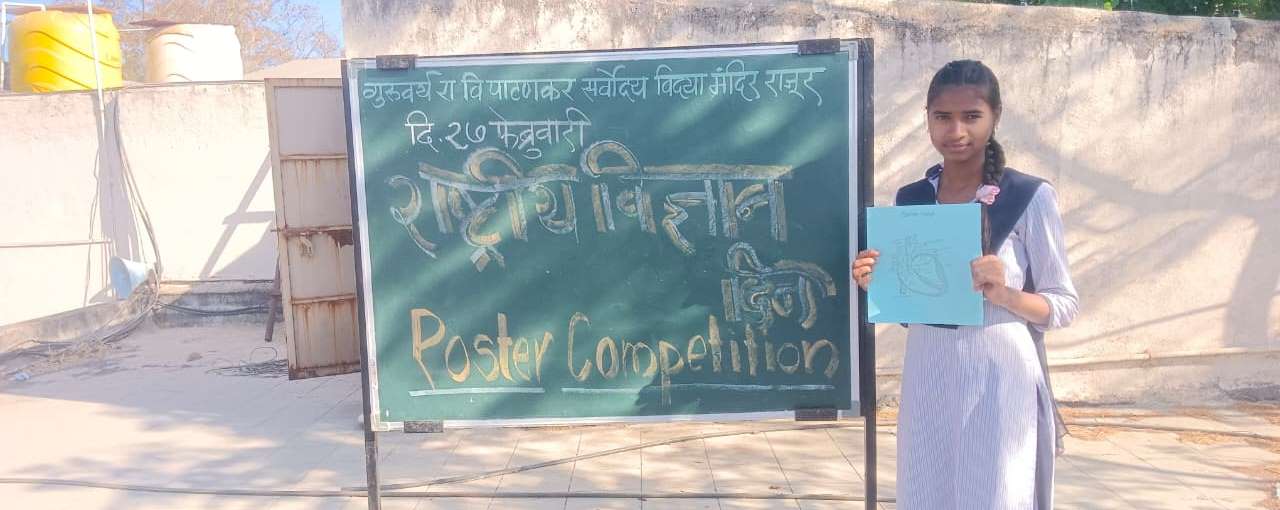 गुरुवर्य रा वि पाटणकर सर्वोदय विद्या मंदिर राजूर
दि. २७ फेब्रुवारी
राष्ट्रीय विज्ञान
दिन
Poster Competition